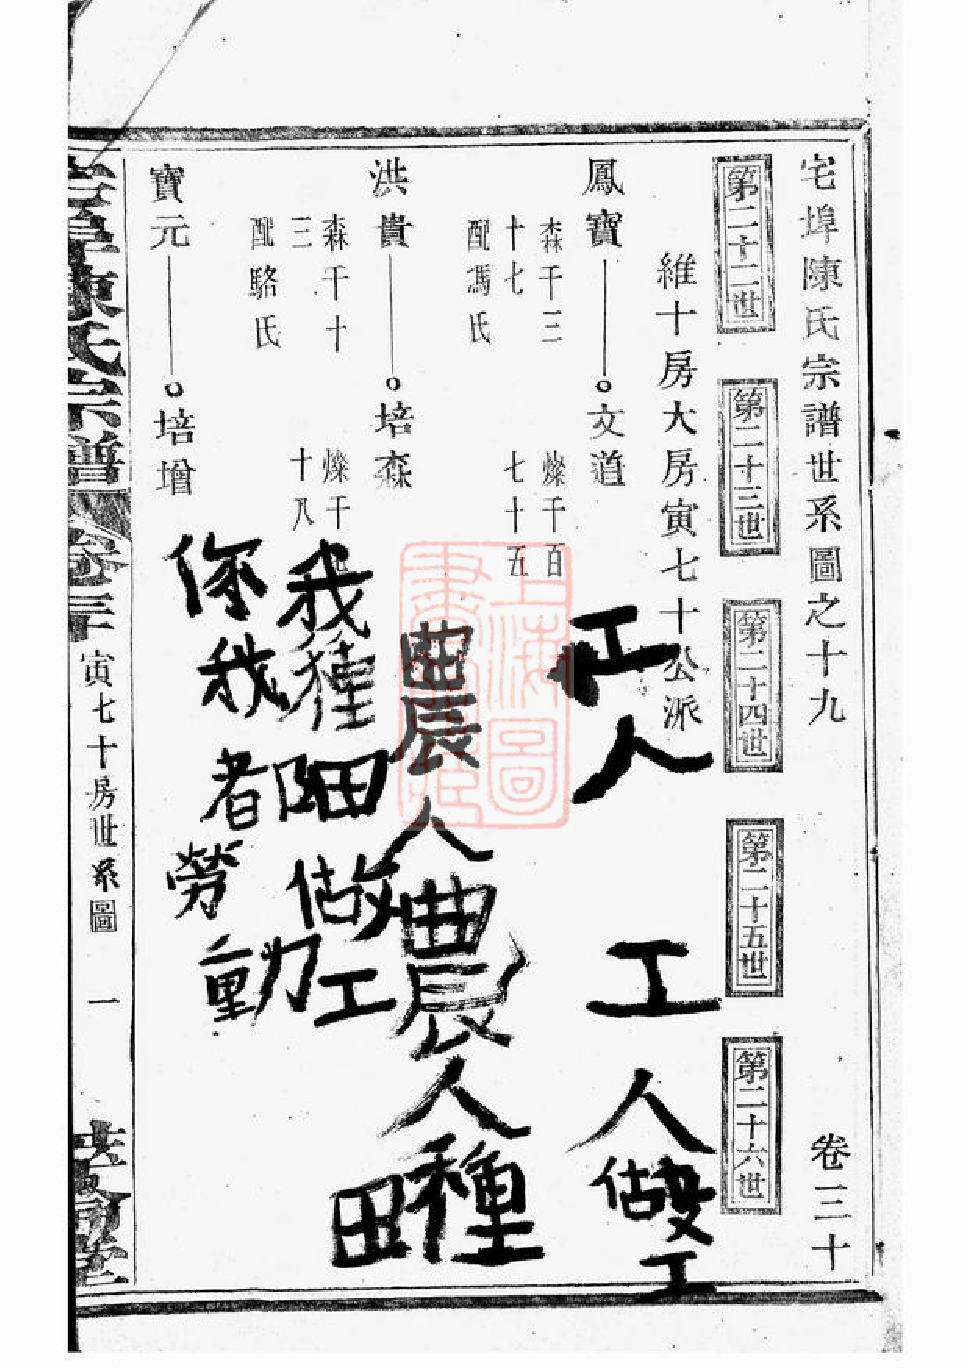 宅埠陳氏宗譜世系圖之十九
卷三十
第二十二世
第二十三世
第二十四世
第二十五世
第二十六世
維十房大房寅七十公派
鳳寶
森千三
十七
配馮氏
文道
燦千百
七十五
洪貴
森千十
三
配駱氏
培森
燦千
十八
寶元
培增
工人
工人做工
農人農人種
田
我種田做工
你我者勞動
宅埠陳氏宗譜
卷三十
寅七十房世系圖
一
上海圖書館